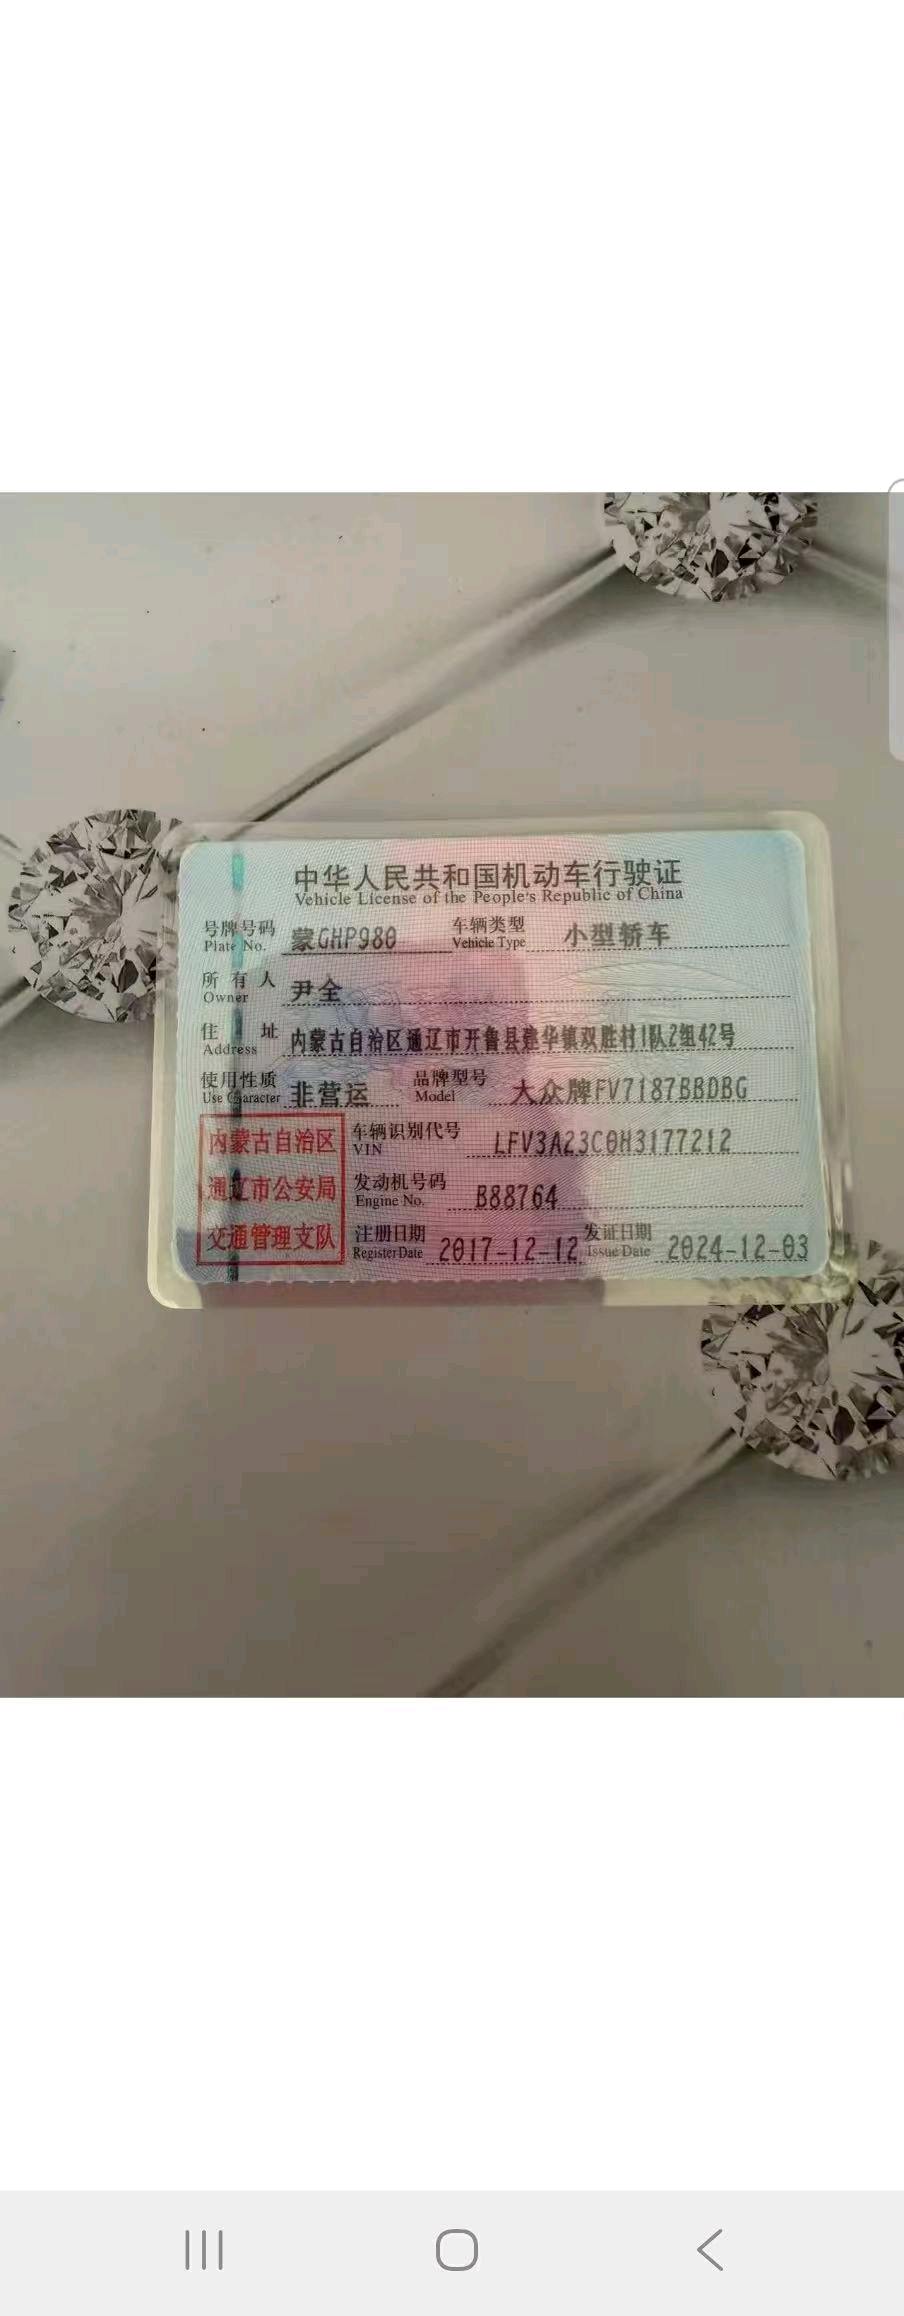 中华人民共和国机动车行驶证
Vehicle License of the People's Republic of China
号牌号码 蒙GHP980 车辆类型 小型轿车
Plate No. Vehicle Type
所有人 尹全
Owner
住址 内蒙古自治区通辽市开鲁县建华镇双胜村1队2组42号
Address
使用性质 非营运 品牌型号 大众牌FV7187BBDBG
Use Character Model
内蒙古自治区
通辽市公安局
交通管理支队
车辆识别代号 LFV3A23C0H3177212
VIN
发动机号码 B88764
Engine No.
注册日期 2017-12-12 发证日期 2024-12-03
Register Date Issue Date